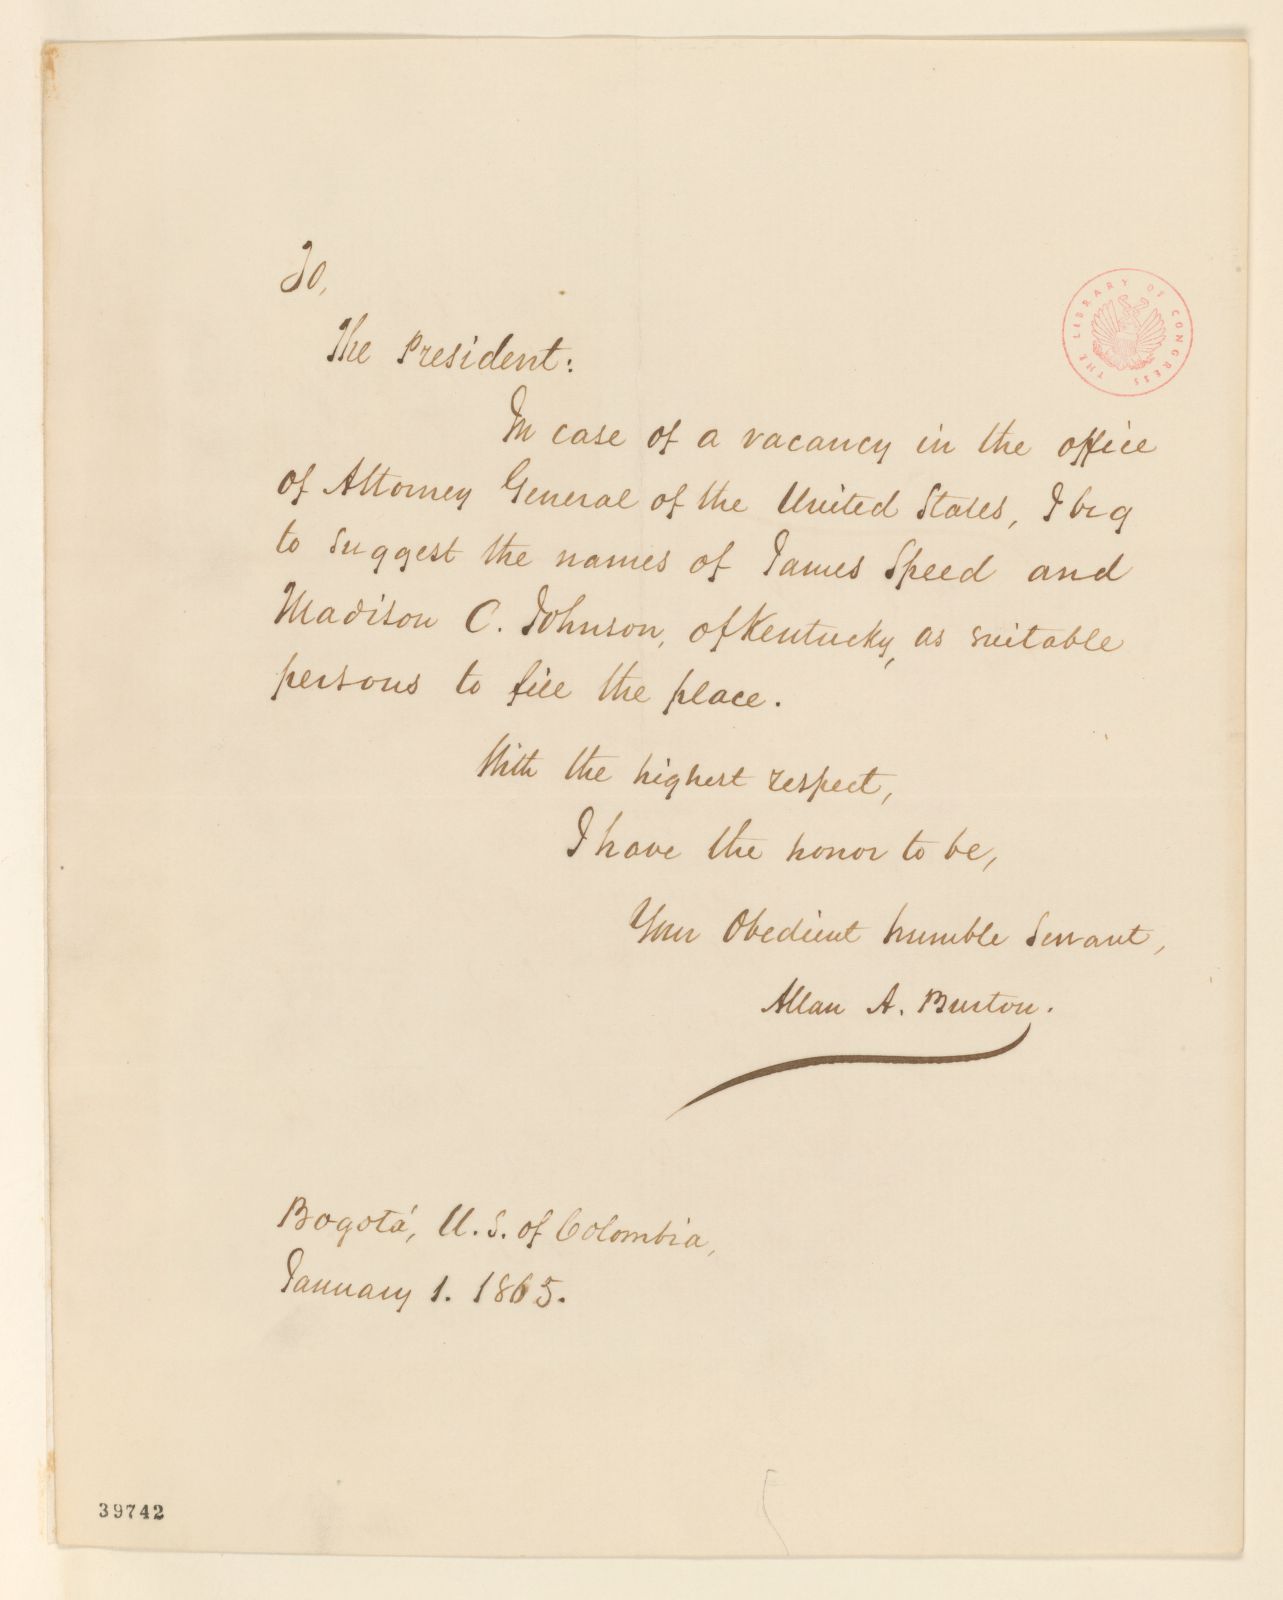 To,
The President:
In case of a vacancy in the office
of Attorney General of the United States, I beg
to suggest the names of James Speed and
Madison C. Johnson, of Kentucky, as suitable
persons to fill the place.
With the highest respect,
I have the honor to be,
Your Obedient humble Servant,
Allan A. Burton.
Bogotá, U.S. of Colombia,
January 1. 1865.
THE LIBRARY OF CONGRESS
39742